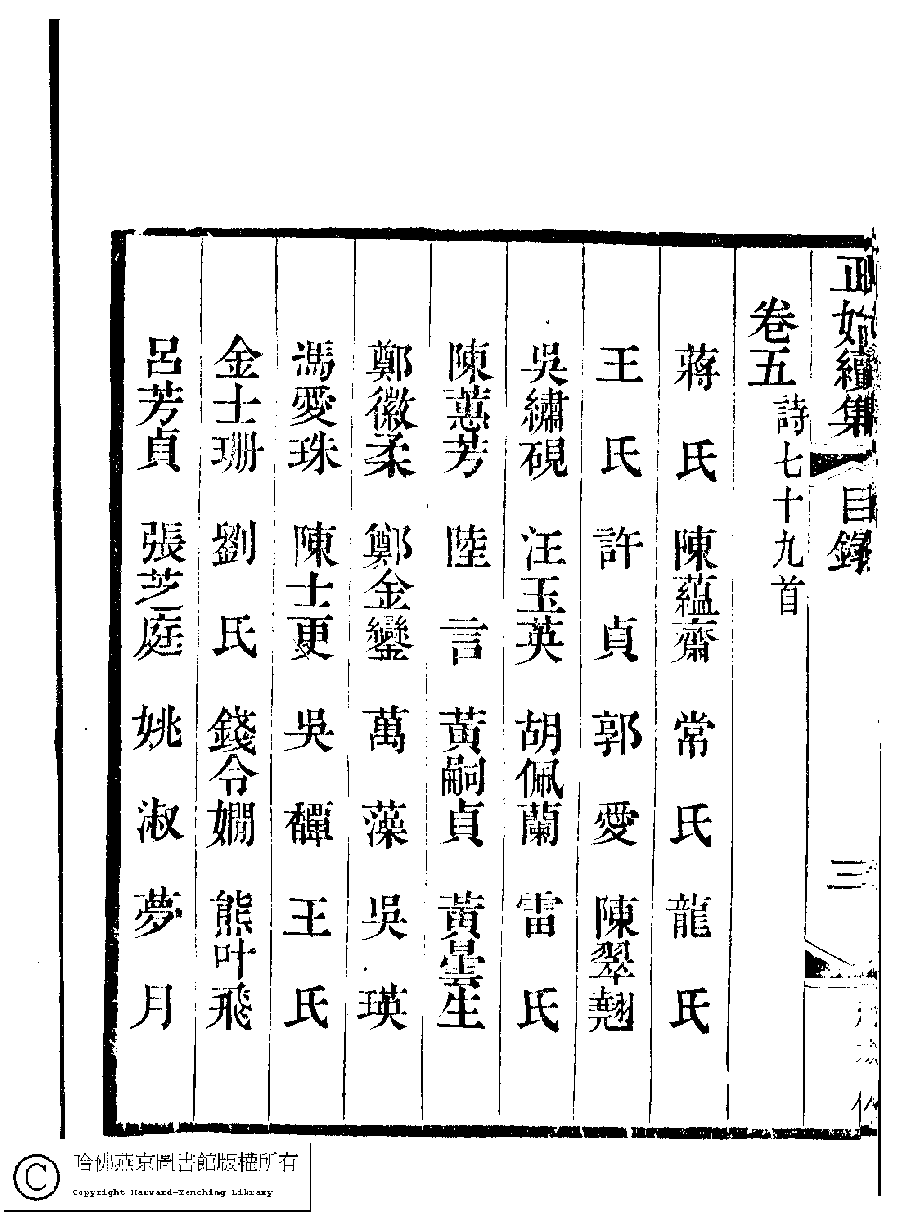 正始續集 目錄 三
卷五 詩七十九首
蔣氏 陳蘊齋 常氏 龍氏
王氏 許貞 郭愛 陳翠翹
吳繡硯 汪玉英 胡佩蘭 雷氏
陳蕙芳 陸言 黃嗣貞 黃曇生
鄭徽柔 鄭金鑾 萬藻 吳瑛
馮愛珠 陳士更 吳𧝓 王氏
金士珊 劉氏 錢令嫺 熊叶飛
呂芳貞 張芝庭 姚淑 夢月
哈佛燕京圖書館版權所有
Copyright Harvard-Yenching Library